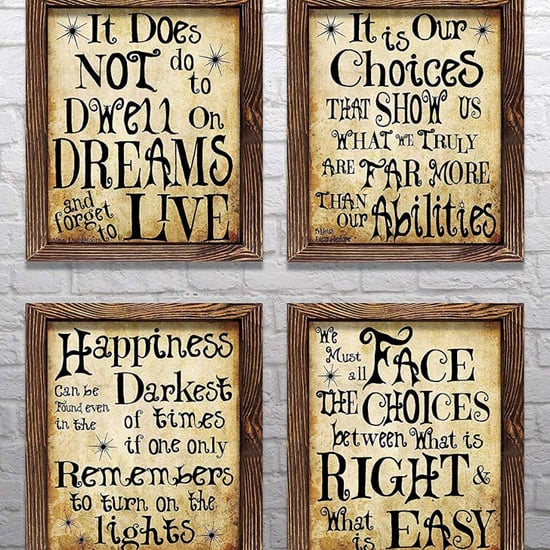 It Does
NOT do
to
Dwell on
DREAMS
and
forget
to LIVE
It is Our
Choices
THAT SHOW US
WHAT WE TRULY
ARE FAR MORE
THAN
OUR Abilities
Happiness
Can be Darkest
Found even of times
in the
if one only
Remembers
to turn on the
lights
We
Must
all FACE
THE CHOICES
between What is
RIGHT &
What
is EASY